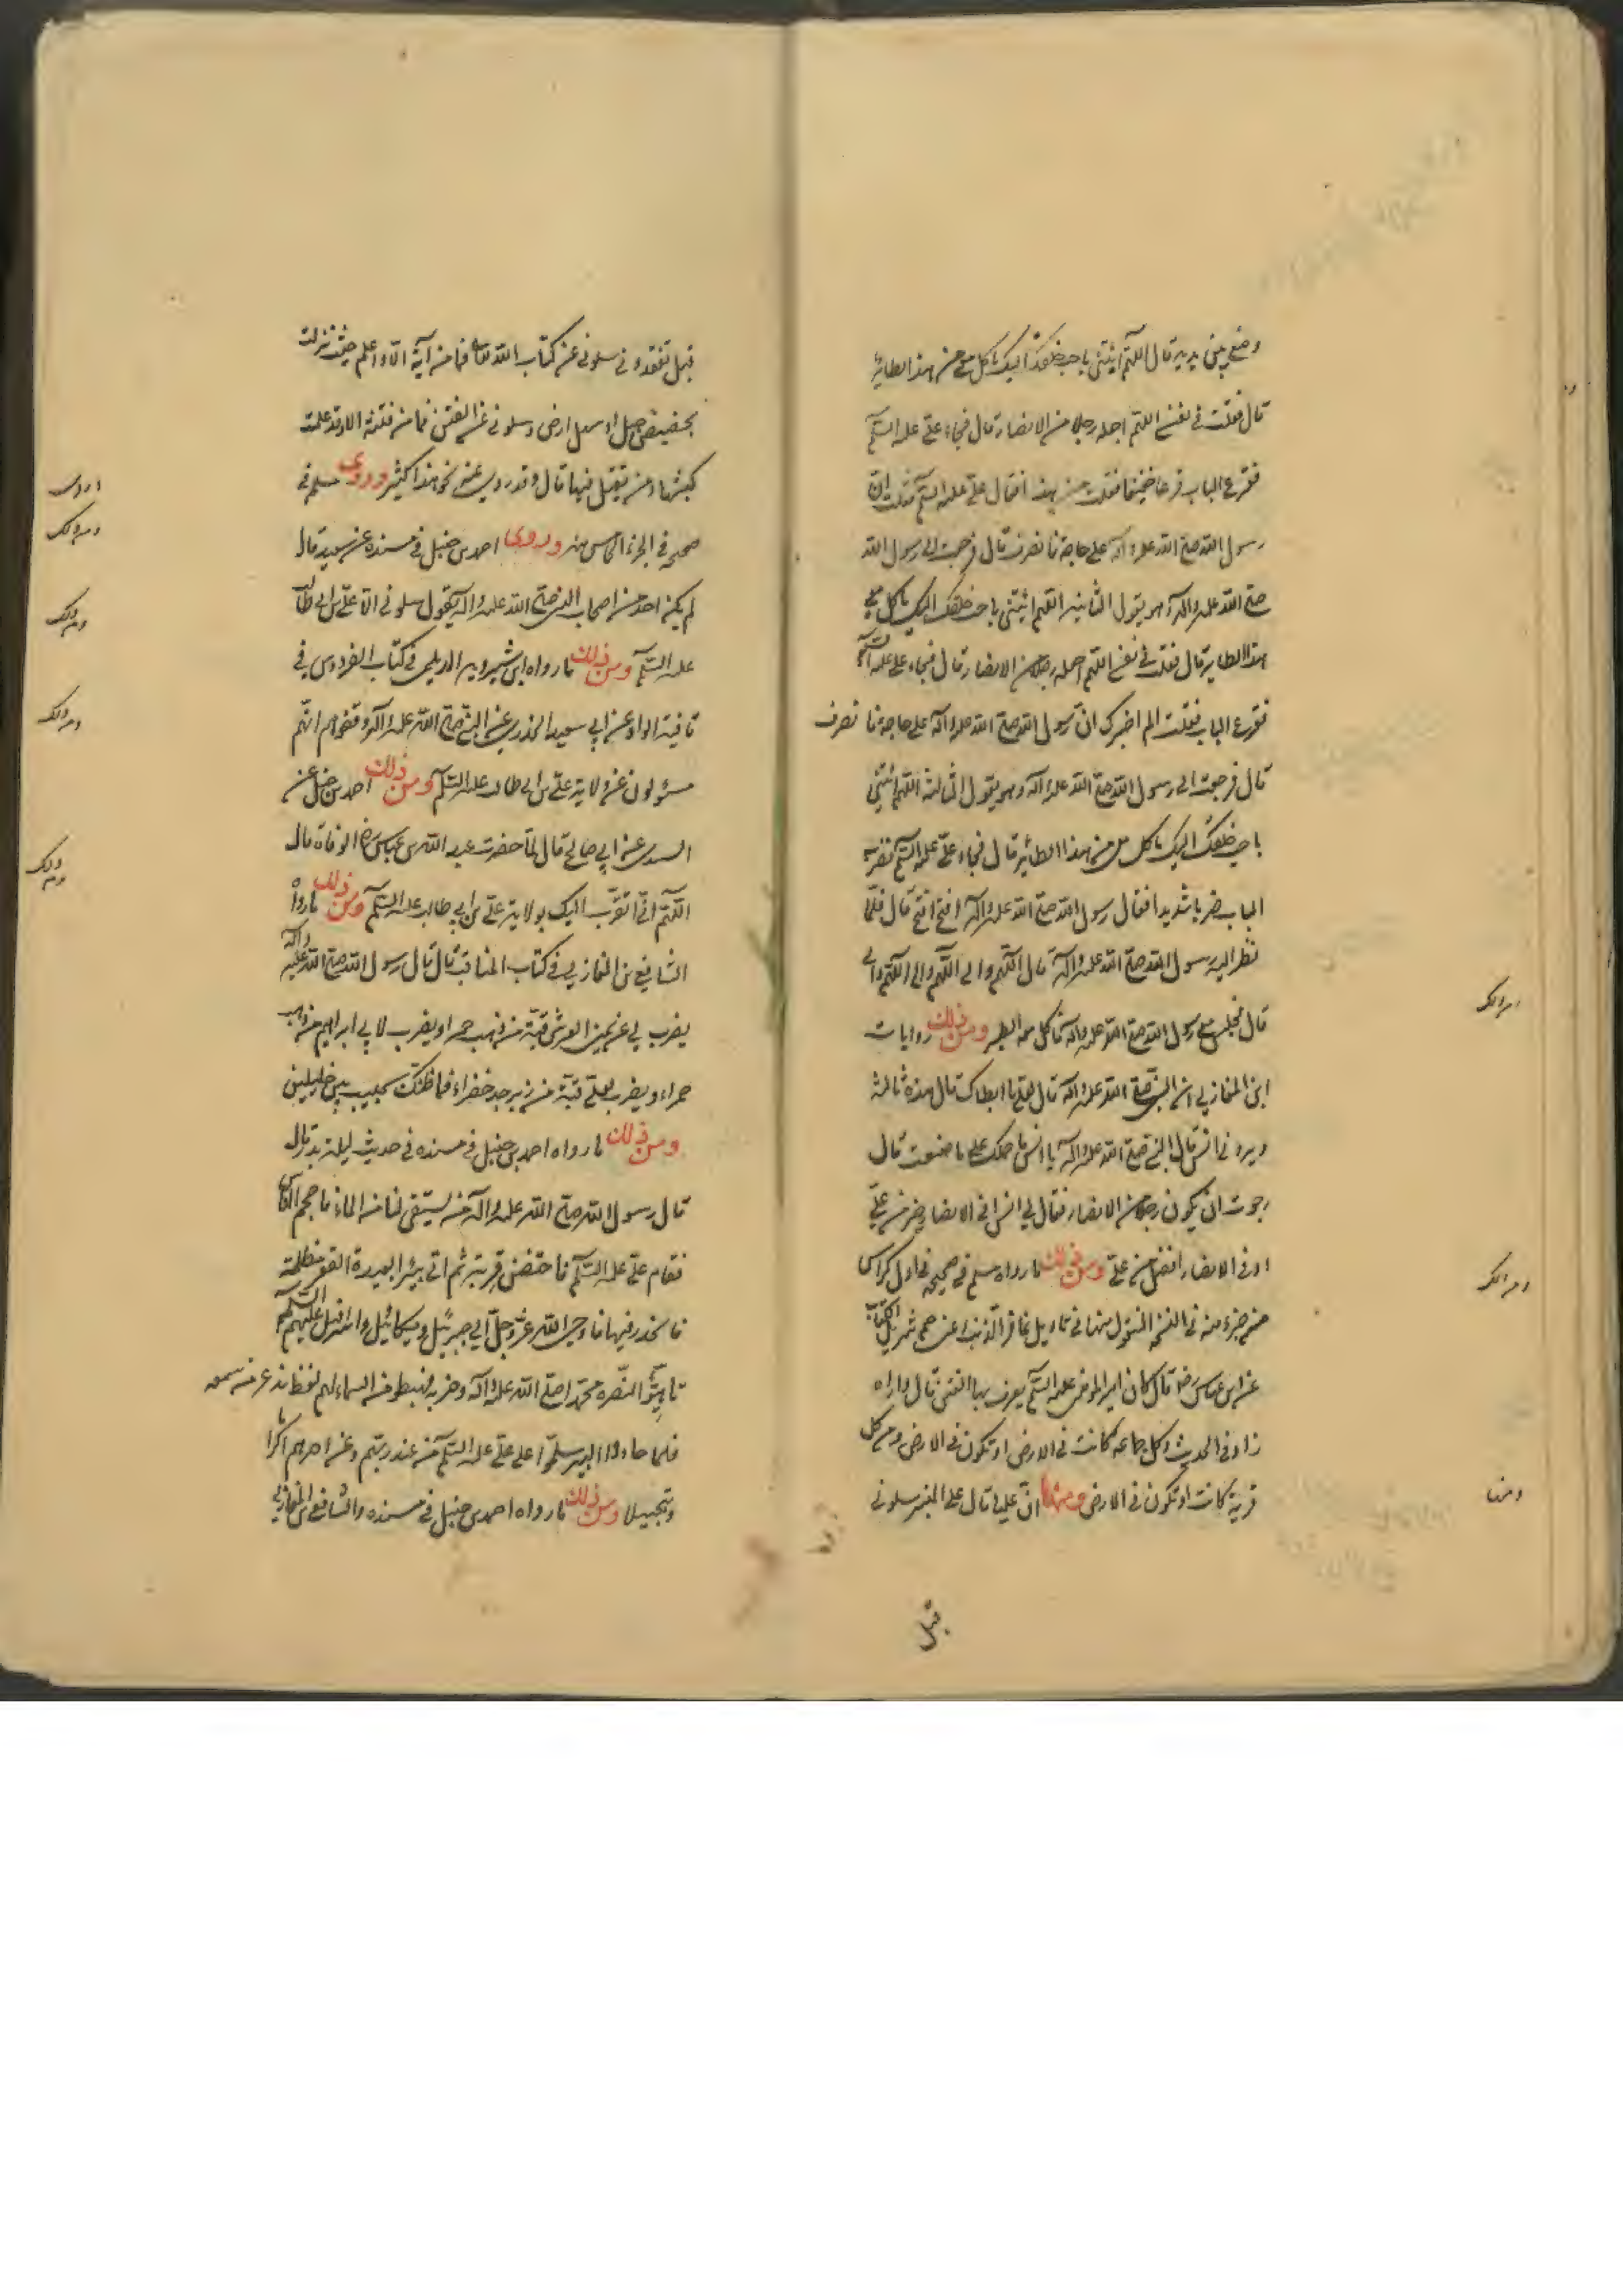 وضع بين يديه قال اللهم ائتني باحب خلقك اليك ياكل معي من هذا الطائر
قال فقلت في نفسي اللهم اجعله رجلا من الانصار قال فجاء علي عليه السلم
فقرع الباب قرعا خفيفا فقلت من هذا فقال علي عليه السلم فقلت ان
رسول الله صلى الله عليه واله على حاجة فانصرف قال فرجعت الى رسول الله
صلى الله عليه واله وهو يقول الثانيه اللهم ائتني باحب خلقك اليك ياكل معي
هذا الطاير قال فقلت في نفسي اللهم اجعله رجلا من الانصار قال فجاء علي عليه السلم
فقرع الباب فقلت الم اخبرك ان رسول الله صلى الله عليه واله على حاجة فانصرف
قال فرجعت الى رسول الله صلى الله عليه واله وهو يقول الثالثة اللهم ائتني
باحب خلقك اليك ياكل معي من هذا الطائر قال فجاء علي عليه السلم فضرب
الباب ضربا شديدا فقال رسول الله صلى الله عليه واله افتح افتح قال فلما
نظر اليه رسول الله صلى الله عليه واله قال اللهم والي اللهم والي اللهم والي
قال فجلس مع رسول الله صلى الله عليه واله فاكل معه الطير ومن ذلك روايات
ابن المغازلي ان النبي صلى الله عليه واله قال لعلي ما ابطاك قال هذه ثالثة
ويردني انس قال النبي صلى الله عليه واله يا انس ما حملك على ما صنعت قال
رجوت ان يكون رجلا من الانصار فقال لي انس افي الانصار خير من علي
او في الانصار افضل من علي ومن ذلك ما رواه مسلم في صحيحه في اول كراس
من جزء منه في النسخة المنقول منها في تاويل غافر الذنب
عن ابن عباس رض قال كان امير المؤمنين عليه السلم يعرف بها الفتن قال واراه
زاد في الحديث وكل جماعه كانت في الارض او تكون في الارض ومن كل
قرية كانت او تكون في الارض ومنها ان عليا قال على المنبر سلوني
قبل
ومنها
قبل تفقدوني سلوني عن كتاب الله تعالى فما من آية الا واعلم حيث نزلت
بحضيض جبل او سهل ارض وسلوني عن الفتن فما من فتنة الا وقد علمت
كبشها ومن يقتل فيها قال وقد روي عنه نحو هذا كثير وروى مسلم في
صحيحه في الجزء الخامس منه وروى احمد بن حنبل في مسنده عن سعيد قال
لم يكن احد من اصحاب النبي صلى الله عليه واله يقول سلوني الا علي بن ابي طالب
عليه السلم ومن ذلك ما رواه ابن شيرويه الديلمي في كتاب الفردوس في
قافية الواو عن ابي سعيد الخدري عن النبي صلى الله عليه واله وقفوهم انهم
مسئولون عن ولاية علي بن ابي طالب عليه السلم ومن ذلك احمد بن حنبل عن
السدي عن ابي صالح قال لما حضرت عبد الله بن عباس رض الوفاة قال
اللهم اني اتقرب اليك بولاية علي بن ابي طالب عليه السلم ومن ذلك ما رواه
الشافعي بن المغازلي في كتاب المناقب قال قال رسول الله صلى الله عليه واله
يضرب لي عن يمين العرش قبة من ذهب حمراء ويضرب لابي ابراهيم من ذهب
حمراء ويضرب لعلي قبة من زبرجد خضراء فما ظنك بحبيب بين خليلين
ومن ذلك ما رواه احمد بن حنبل في مسنده في حديث ليلة بدر قال
قال رسول الله صلى الله عليه واله من يستقى لنا من الماء فاحجم الناس
فقام علي عليه السلم فاحتضن قربة ثم اتى بئرا بعيدة القعر مظلمة
فانحدر فيها فاوحى الله عز وجل الى جبرئيل وميكائيل واسرافيل عليهم السلم
تاهبوا لنصرة محمد صلى الله عليه واله وحزبه فهبطوا من السماء لهم لغط يذعر من سمعه
فلما حاذوا البير سلموا على علي عليه السلم من عند ربهم وعن اخرهم اكراما
وتبجيلا ومن ذلك ما رواه احمد بن حنبل في مسنده والشافعي بن المغازلي